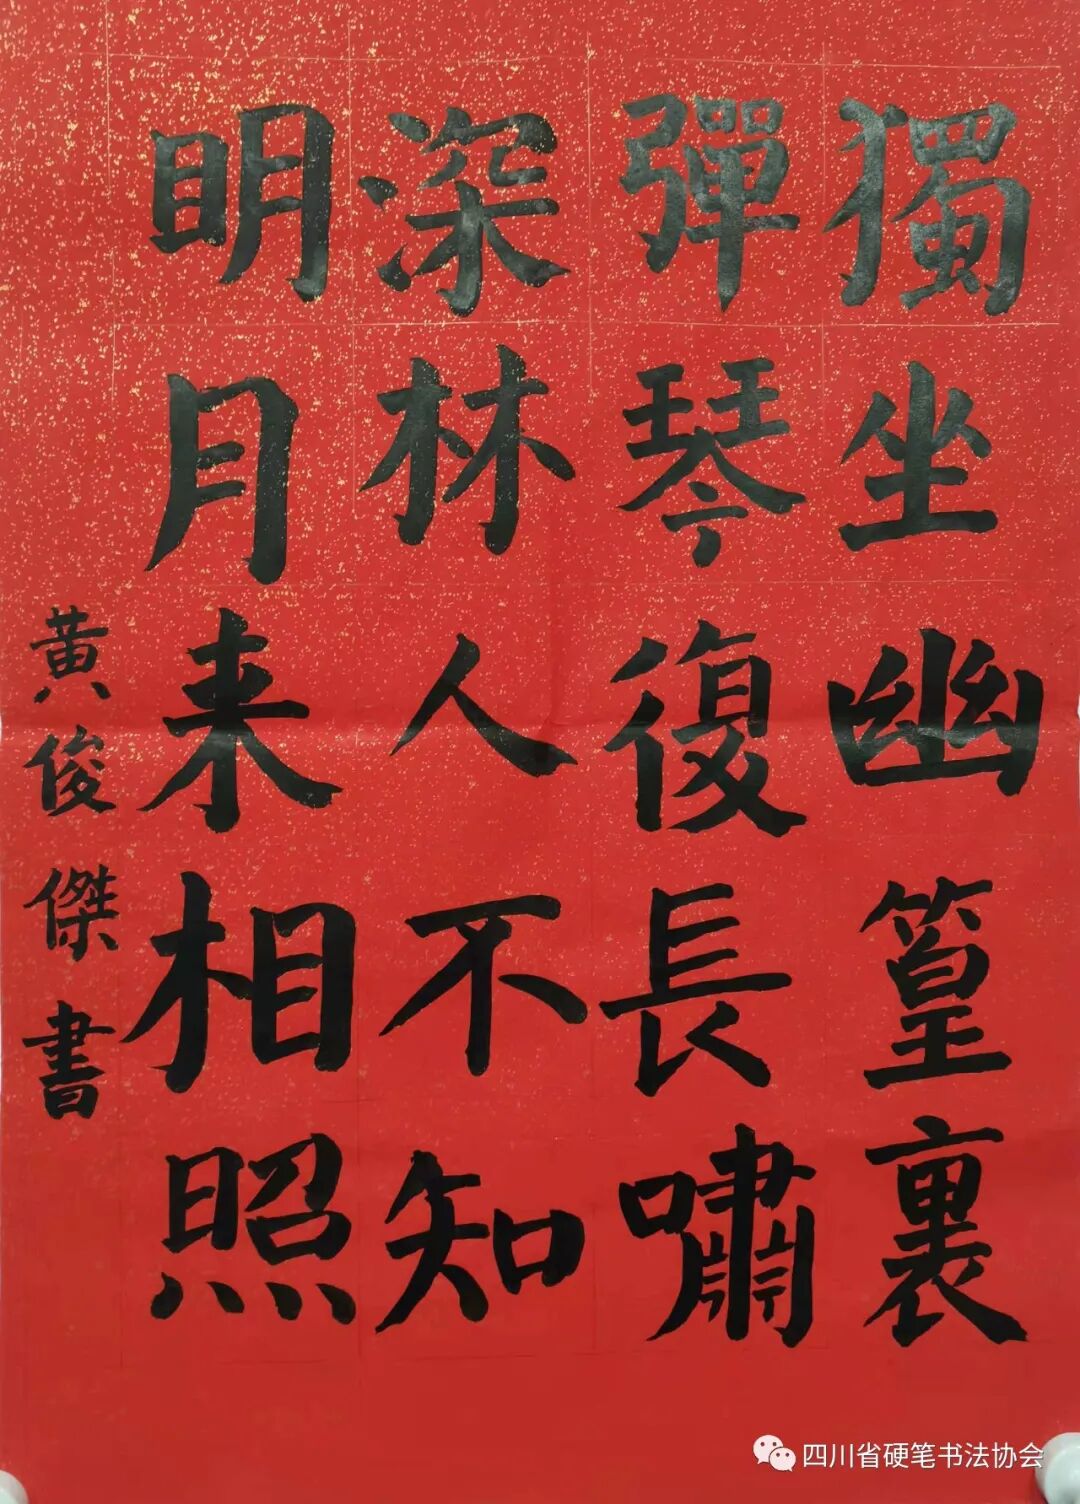 獨坐幽篁裏
彈琴復長嘯
深林人不知
明月来相照
黄俊傑書
四川省硬笔书法协会